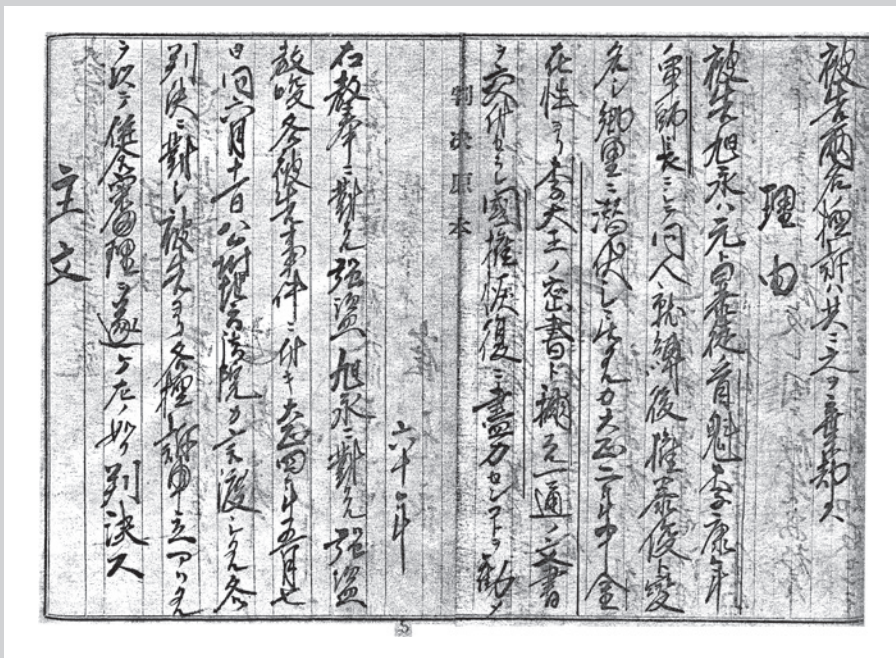 被告兩名控訴ハ共ニ之ヲ棄却ス
理由
被告旭永ハ元暴徒ノ首魁李康年
軍師長ニシテ同人就縛後權泰俊ト變
名シ郷里ニ潜伏シ居タルカ大正二年中金
在性ヨリ李太王ノ密書ト稱スル一通ノ文書
ヲ交付セラレ國權恢復ニ盡力センコトヲ勸メ
判決原本
六十年
右教奉ニ對スル強盗旭永ニ對スル強盗
教唆各被告事件ニ付キ大正四年五月七
日同六月十一日公州地方法院カ言渡シタル各
判決ニ對シ被告ヨリ各控訴申立アリタル
ヲ以テ併合審理ヲ遂ケ左ノ如ク判決ス
主文
5